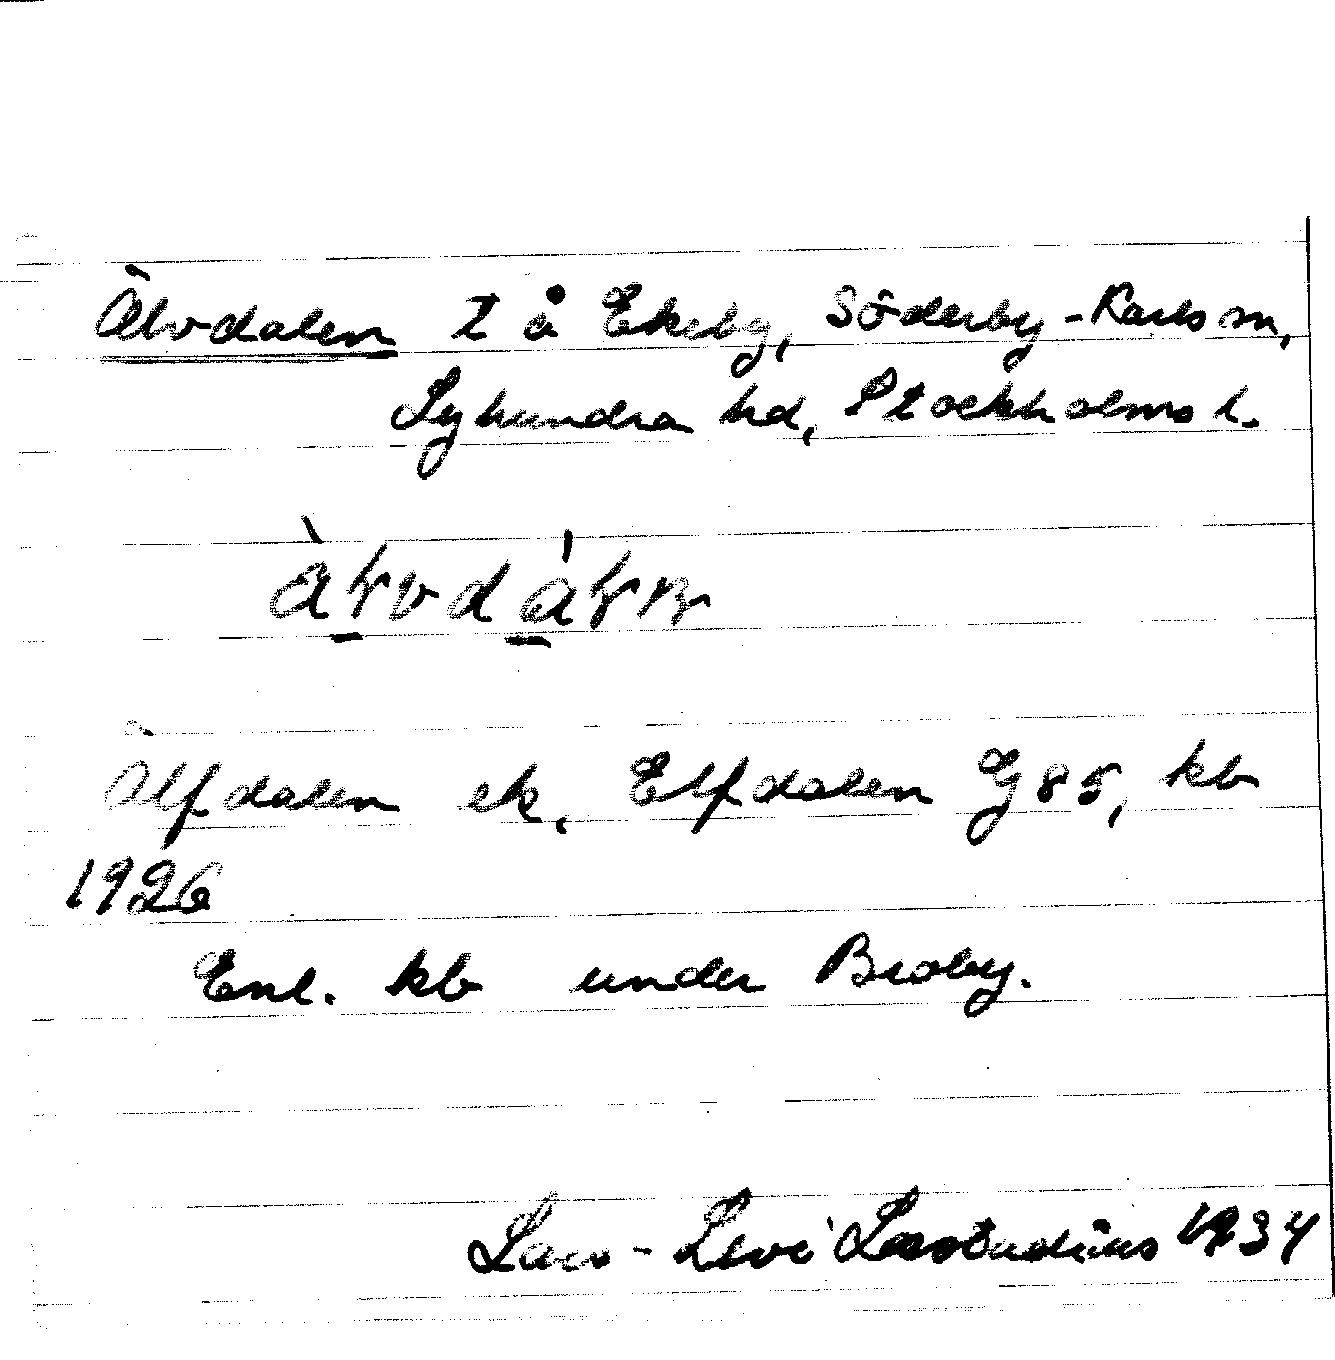 Älvdalen t å Ekeby, Söderby-Karls sn,
Lyhundra hd, Stockholms l.
Älfdalen ek, Elfdalen G 85, kb
1926
Enl. kb under Broby.
Lars-Levi Læstadius 1934